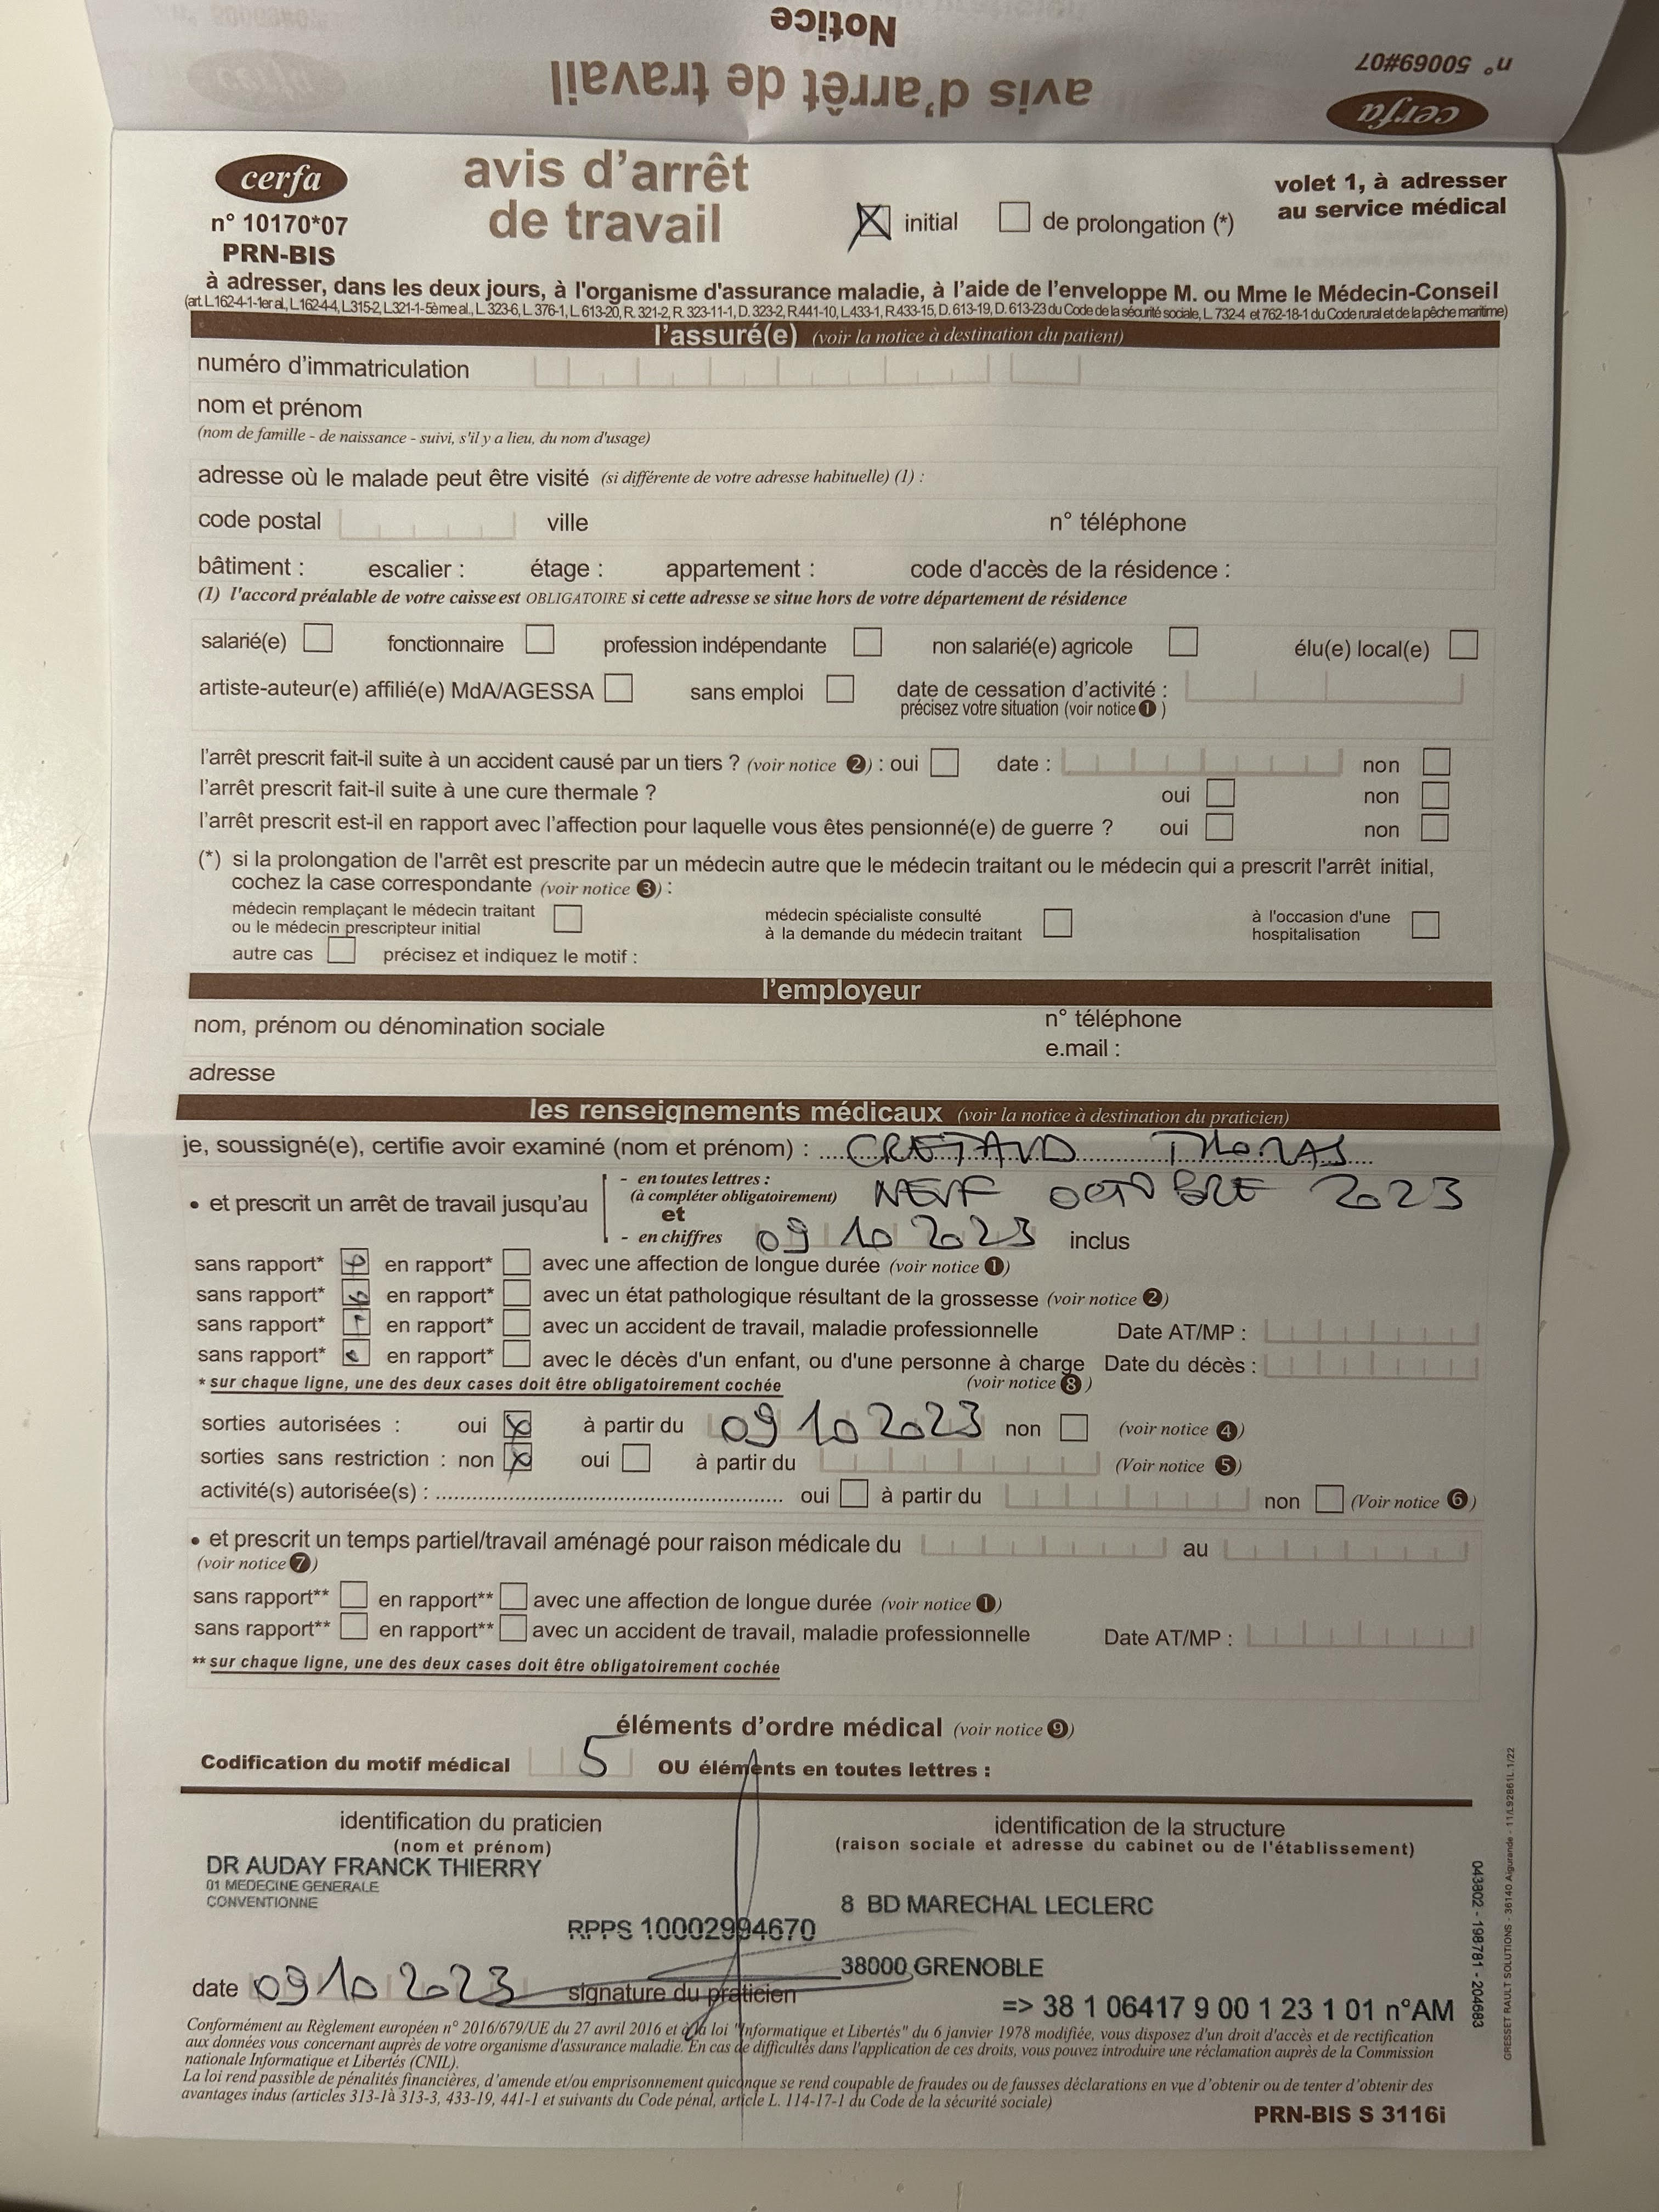 Notice
avis d'arrêt de travail
n° 50069#07
cerfa
cerfa
n° 10170*07
PRN-BIS
avis d'arrêt
de travail
initial
de prolongation (*)
volet 1, à adresser
au service médical
à adresser, dans les deux jours, à l'organisme d'assurance maladie, à l'aide de l'enveloppe M. ou Mme le Médecin-Conseil
(art. L.162-4-1-1er al., L.162-4-4, L.315-2, L.321-1-5ème al., L. 323-6, L. 376-1, L. 613-20, R. 321-2, R. 323-11-1, D. 323-2, R.441-10, L.433-1, R.433-15, D. 613-19, D. 613-23 du Code de la sécurité sociale, L. 732-4 et 762-18-1 du Code rural et de la pêche maritime)
l'assuré(e) (voir la notice à destination du patient)
numéro d'immatriculation
nom et prénom
(nom de famille - de naissance - suivi, s'il y a lieu, du nom d'usage)
adresse où le malade peut être visité (si différente de votre adresse habituelle) (1) :
code postal ville n° téléphone
bâtiment : escalier : étage : appartement : code d'accès de la résidence :
(1) l'accord préalable de votre caisse est OBLIGATOIRE si cette adresse se situe hors de votre département de résidence
salarié(e) fonctionnaire profession indépendante non salarié(e) agricole élu(e) local(e)
artiste-auteur(e) affilié(e) MdA/AGESSA sans emploi date de cessation d'activité :
précisez votre situation (voir notice 1 )
l'arrêt prescrit fait-il suite à un accident causé par un tiers ? (voir notice 2) : oui date : non
l'arrêt prescrit fait-il suite à une cure thermale ? oui non
l'arrêt prescrit est-il en rapport avec l'affection pour laquelle vous êtes pensionné(e) de guerre ? oui non
(*) si la prolongation de l'arrêt est prescrite par un médecin autre que le médecin traitant ou le médecin qui a prescrit l'arrêt initial,
cochez la case correspondante (voir notice 3) :
médecin remplaçant le médecin traitant
ou le médecin prescripteur initial
médecin spécialiste consulté
à la demande du médecin traitant
à l'occasion d'une
hospitalisation
autre cas précisez et indiquez le motif :
l'employeur
nom, prénom ou dénomination sociale n° téléphone
e.mail :
adresse
les renseignements médicaux (voir la notice à destination du praticien)
je, soussigné(e), certifie avoir examiné (nom et prénom) : CRETAUD THOMAS
- en toutes lettres :
(à compléter obligatoirement) NEUF OCTOBRE 2023
• et prescrit un arrêt de travail jusqu'au
et
- en chiffres 09 10 2023 inclus
sans rapport* en rapport* avec une affection de longue durée (voir notice 1)
sans rapport* en rapport* avec un état pathologique résultant de la grossesse (voir notice 2)
sans rapport* en rapport* avec un accident de travail, maladie professionnelle Date AT/MP :
sans rapport* en rapport* avec le décès d'un enfant, ou d'une personne à charge Date du décès :
* sur chaque ligne, une des deux cases doit être obligatoirement cochée (voir notice 8 )
sorties autorisées : oui à partir du 09 10 2023 non (voir notice 4)
sorties sans restriction : non oui à partir du (Voir notice 5)
activité(s) autorisée(s) : oui à partir du non (Voir notice 6)
• et prescrit un temps partiel/travail aménagé pour raison médicale du au
(voir notice 7)
sans rapport** en rapport** avec une affection de longue durée (voir notice 1)
sans rapport** en rapport** avec un accident de travail, maladie professionnelle Date AT/MP :
** sur chaque ligne, une des deux cases doit être obligatoirement cochée
éléments d'ordre médical (voir notice 9)
Codification du motif médical 5 OU éléments en toutes lettres :
identification du praticien
(nom et prénom)
DR AUDAY FRANCK THIERRY
01 MEDECINE GENERALE
CONVENTIONNE
RPPS 10002994670
identification de la structure
(raison sociale et adresse du cabinet ou de l'établissement)
8 BD MARECHAL LECLERC
38000 GRENOBLE
date 09 10 2023 signature du praticien
=> 38 1 06417 9 00 1 23 1 01 n°AM
Conformément au Règlement européen n° 2016/679/UE du 27 avril 2016 et à la loi "Informatique et Libertés" du 6 janvier 1978 modifiée, vous disposez d'un droit d'accès et de rectification
aux données vous concernant auprès de votre organisme d'assurance maladie. En cas de difficultés dans l'application de ces droits, vous pouvez introduire une réclamation auprès de la Commission
nationale Informatique et Libertés (CNIL).
La loi rend passible de pénalités financières, d'amende et/ou emprisonnement quiconque se rend coupable de fraudes ou de fausses déclarations en vue d'obtenir ou de tenter d'obtenir des
avantages indus (articles 313-1à 313-3, 433-19, 441-1 et suivants du Code pénal, article L. 114-17-1 du Code de la sécurité sociale)
PRN-BIS S 3116i
043802 - 198781 - 204683
GRESSET RAULT SOLUTIONS - 36140 Aigurande - 11/L92861L 1/22